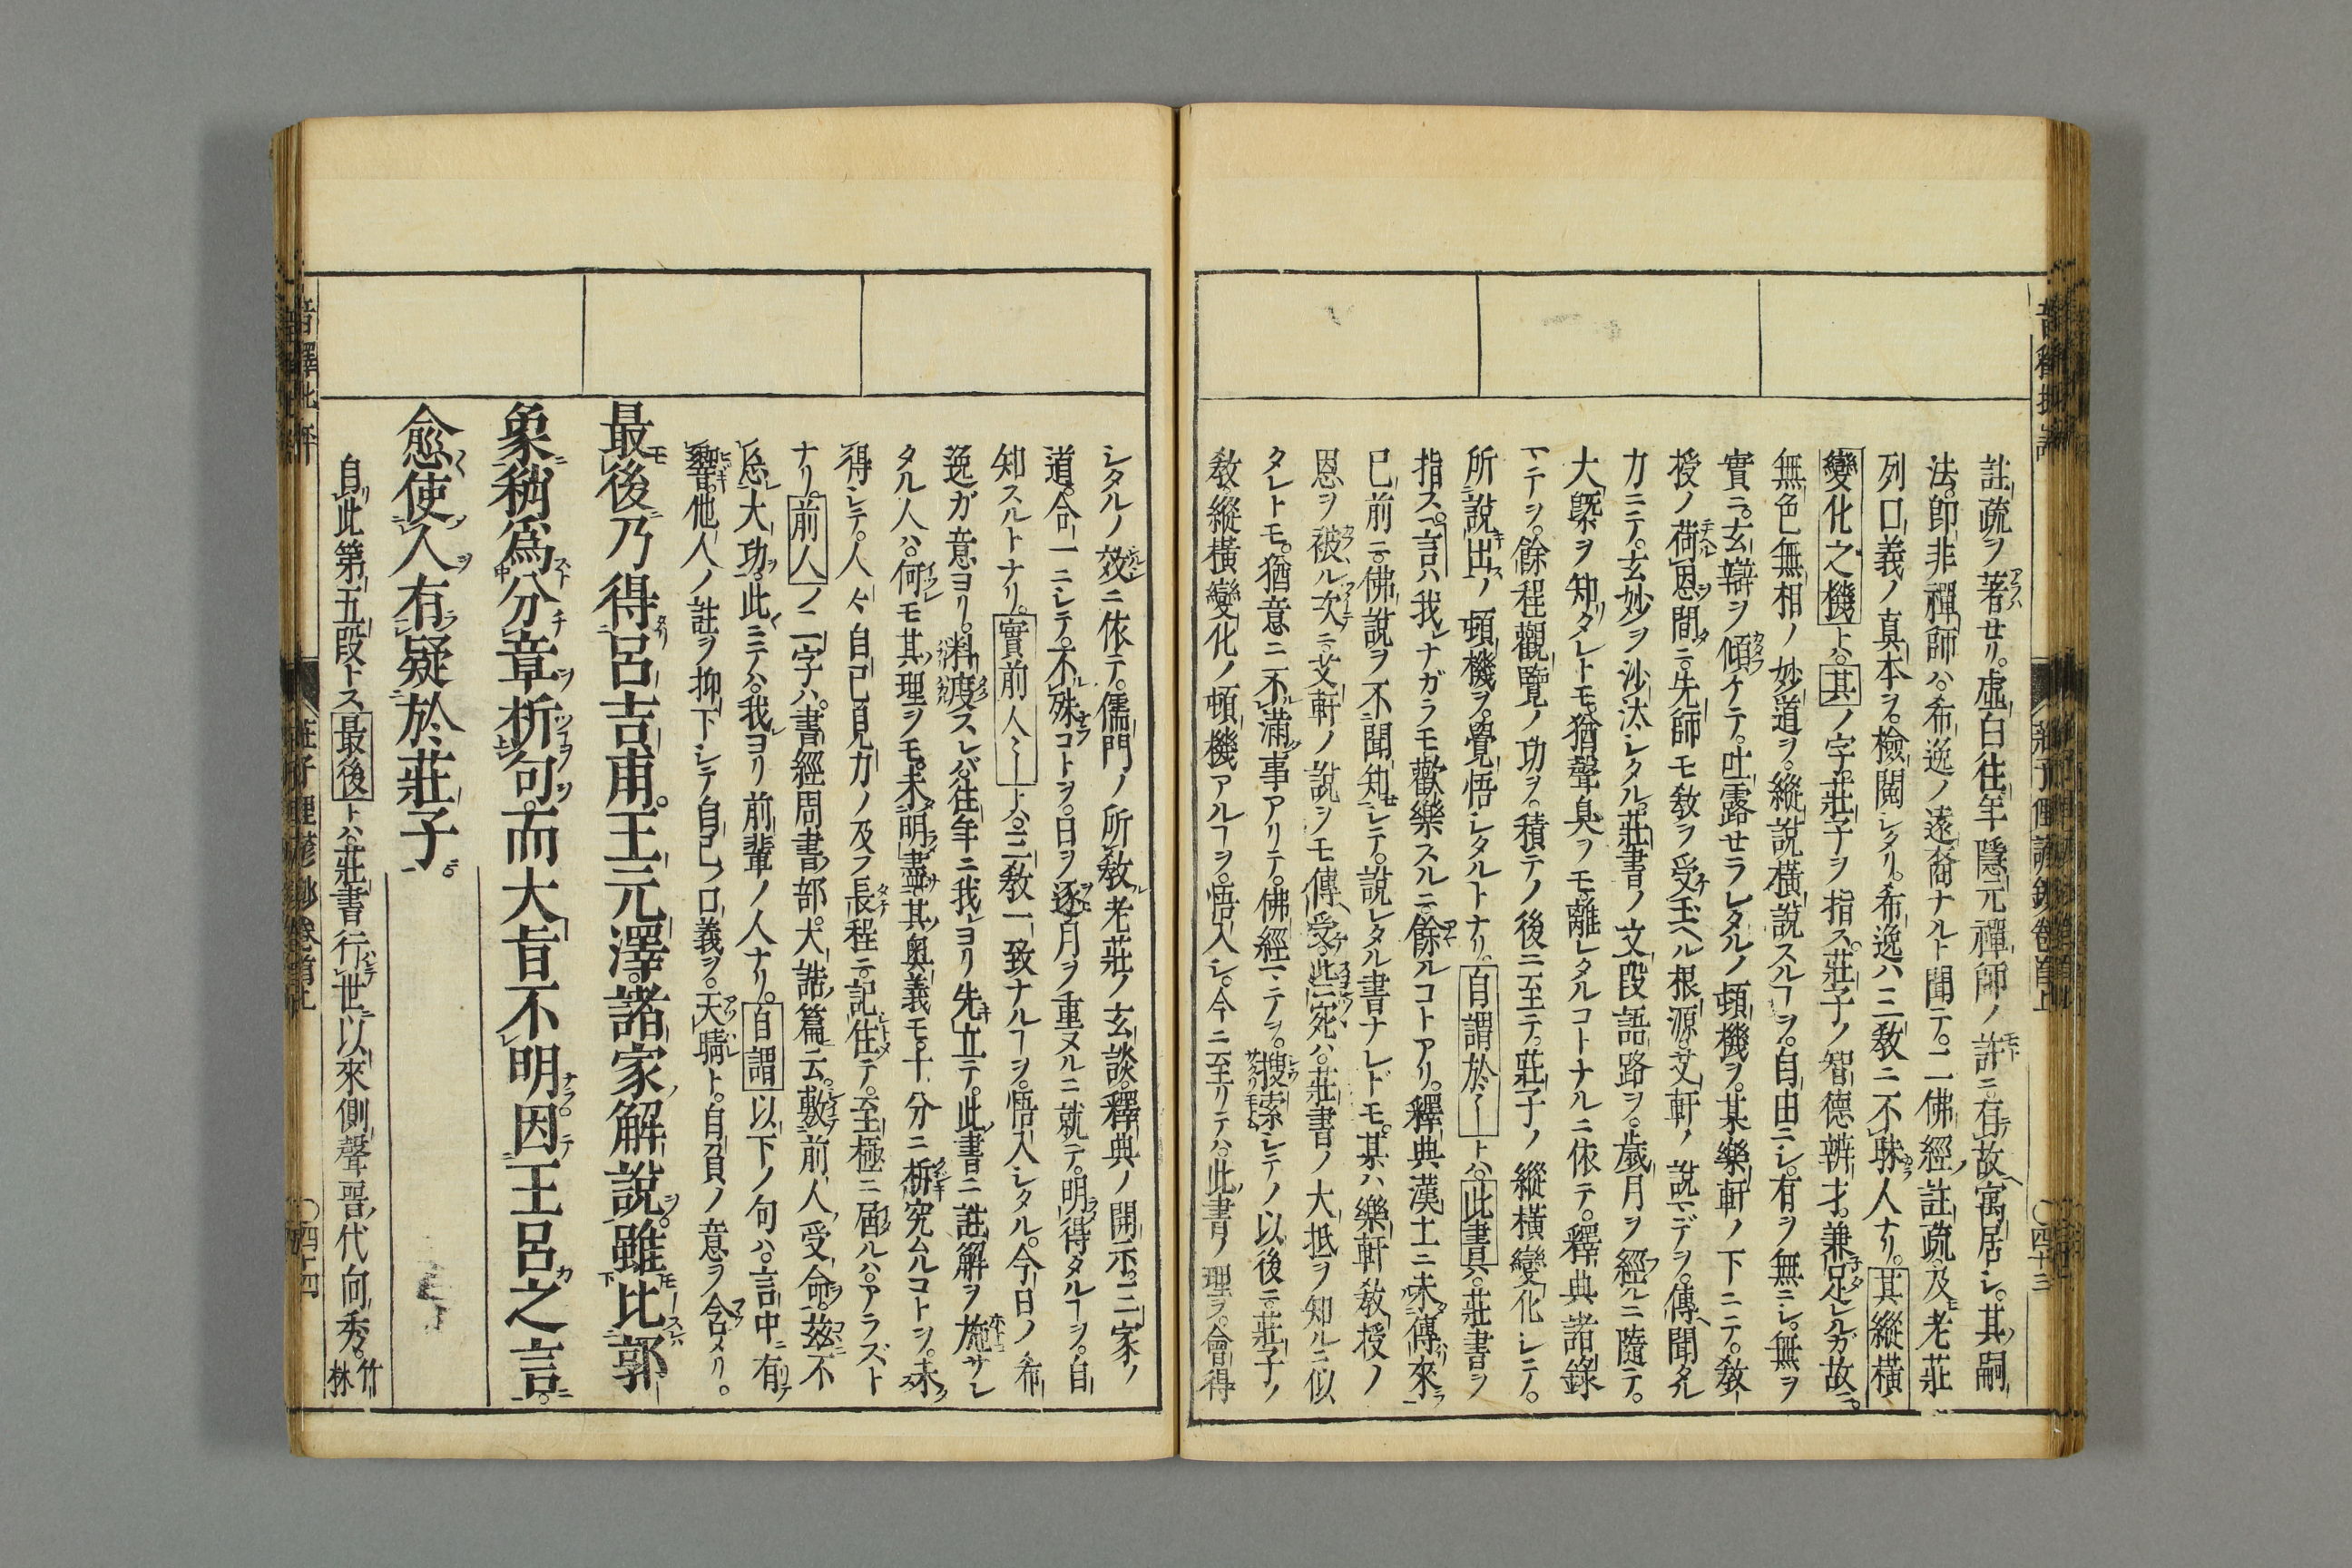 註疏ヲ著セリ。虚白往年隱元禪師ノ許ニ有故寓居シ。其嗣
法。即非禪師ハ。希逸ノ遠裔ナルト聞テ。二佛經註疏。及老莊
列口義ノ真本ヲ。檢閲シタリ。希逸ハ三教ニ不昧人ナリ。其縱橫
變化之機トハ。其ノ字。莊子ヲ指ス。莊子ノ智德辨才。兼足レルガ故ニ。
無色無相ノ妙道ヲ。縱說橫說スルヿヲ。自由ニシ。有ヲ無ニシ。無ヲ
實ニ。玄辯ヲ傾ケテ。吐露セラレタルノ頓機ヲ。某樂軒ノ下ニテ。教
授ノ荷恩間ニ。先師モ教ヲ受玉ヘル根源。艾軒ノ說マデヲ。傳聞タル
力ニテ。玄妙ヲ沙汰シタル。莊書ノ文段語路ヲ。歲月ヲ經ルニ隨テ。
大槩ヲ知タレトモ。猶聲臭ヲモ。離レタルコトナルニ依テ。釋典諸錄
マテヲ。餘程觀覽ノ功ヲ。積テノ後ニ至テ。莊子ノ縱橫變化シテ。
所說出ノ頓機ヲ。覺悟シタルトナリ。自謂於〱トハ。此書具。莊書ヲ
指ス。言ハ我レナガラモ。歡樂スルニ。餘ルコトアリ。釋典漢土ニ未傳來
已前ニ。佛說ヲ不聞知シテ。說レタル書ナレドモ。某ハ樂軒教授ノ
恩ヲ被ル次ニ。艾軒ノ說ヲモ傳受。此ハ。莊書ノ大抵ヲ知ルニ似
タレトモ。猶意ニ不滿事アリテ。佛經マテヲ。搜索シテノ以後ニ。莊子ノ
教。縱橫變化ノ頓機アルヿヲ。悟入シ。今ニ至リテハ。此書ノ理ヲ。會得
シタルノ效ニ依テ。儒門ノ所教。老莊ノ玄談。釋典ノ開示。三家ノ
道。合一ニシテ。不殊コトヲ。日ヲ逐月ヲ重ヌルニ就テ。明得タルヿヲ。自
知スルトナリ。實前人〱トハ。三教一致ナルヿヲ。悟入シタル。今日ノ希
逸ガ意ヨリ。料度スレバ往年ニ我ヨリ先立テ。此書ニ註解ヲ施サレ
タル人ハ。何モ其理ヲモ。未明盡。其奥義モ。十分ニ析究ムルコトヲ。未
得シテ。人々自己見力ノ及フ長程ニ。記住テ。至極ニ屆ルハ。アラズト
ナリ。前人ノ二字ハ。書經周書ノ部。大誥篇ニ云。敷前人受命。茲不
忘大功。此ニテハ。我ヨリ前輩ノ人ナリ。自謂以下ノ句ハ。言中ニ有
響。他人ノ註ヲ抑下シテ自己ノ口義ヲ。天晴ト。自負ノ意ヲ含メリ。
最後乃得呂吉甫。王元澤。諸家解說。雖比郭
象稍爲分章析句。而大旨不明因王呂之言。
愈使人有疑於莊子
自此第五段トス最後トハ。莊書行世以來側聲晉代向秀。竹林
莊子俚諺鈔卷首上
〇四十三
〇四十四